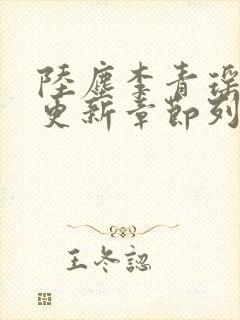 陸塵李青瑤
更新章節列
王冬認